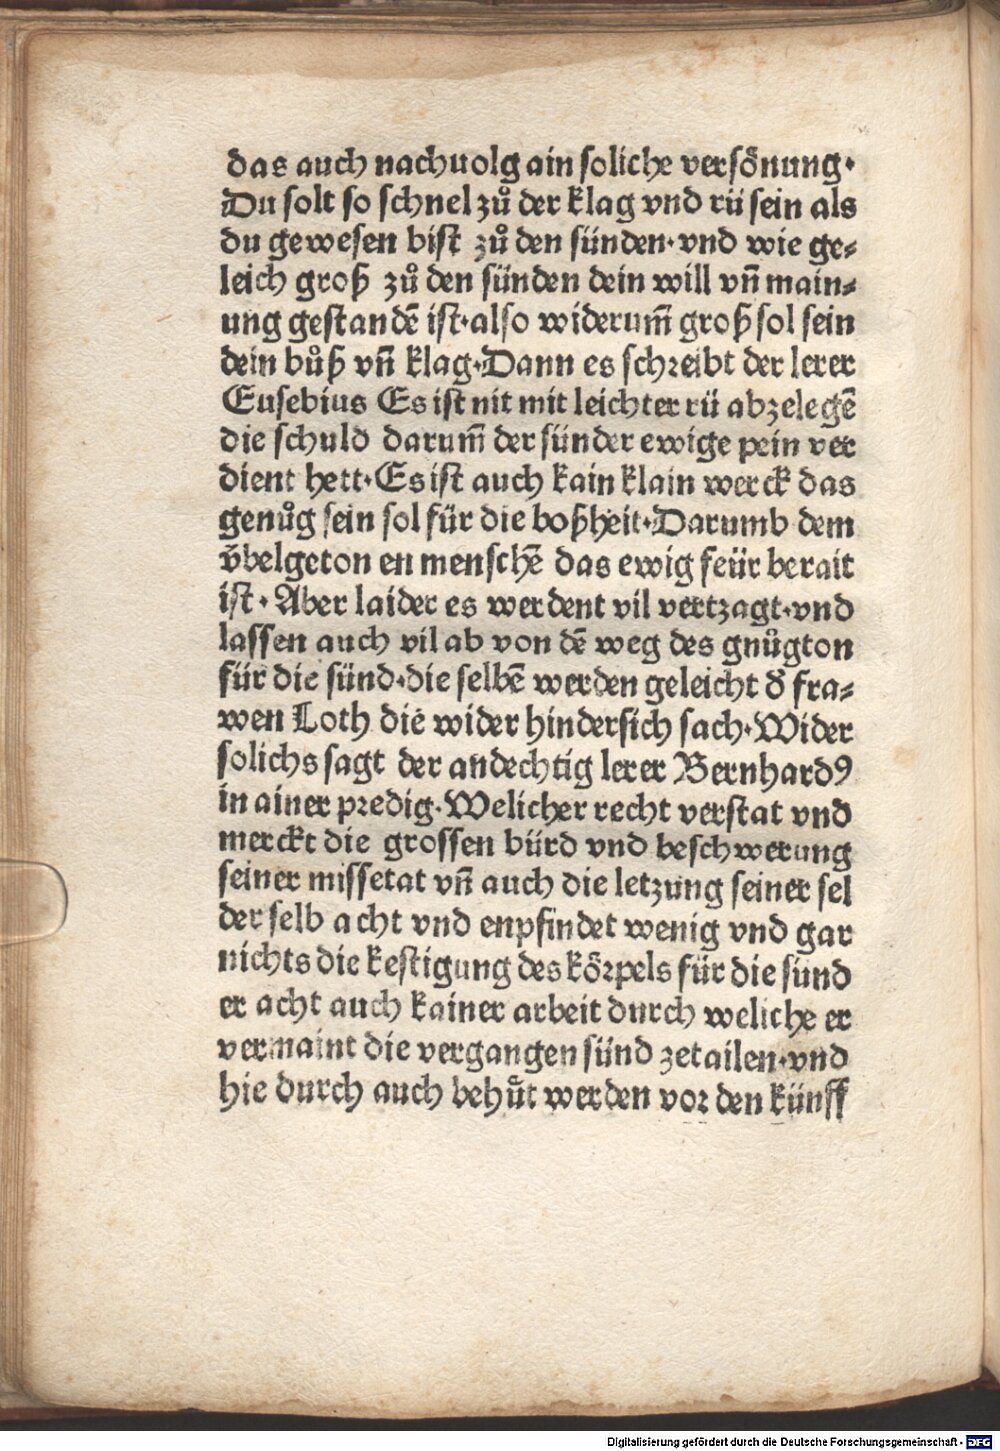 das auch nachuolg ain soliche versönung·
Du solt so schnel zů der klag vnd rü sein als
du gewesen bist zů den sünden·vnd wie ge-
leich groß zů den sünden dein will vñ main-
ung gestandẽ ist·also widerum̃ groß sol sein
dein bůß vñ klag·Dann es schreibt der lerer
Eusebius Es ist nit mit leichter rü abzelegẽ
die schuld darum̃ der sünder ewige pein ver
dient hett·Es ist auch kain klain werck das
genůg sein sol für die boßheit·Darumb dem
v̈belgeton en menschẽ das ewig feür berait
ist·Aber laider es werdent vil vertzagt·vnd
lassen auch vil ab von dẽ weg des gnůgton
für die sünd·die selbẽ werden geleicht d̕ fra-
wen Loth die wider hindersich sach·Wider
solichs sagt der andechtig lerer Bernhardꝰ
in ainer predig·Welicher recht verstat vnd
merckt die grossen bürd vnd beschwerung
seiner missetat vñ auch die letzung seiner sel
der selb acht vnd enpfindet wenig vnd gar
nichts die kestigung des körpels für die sünd
er acht auch kainer arbeit durch weliche er
vermaint die vergangen sünd zetailen·vnd
hie durch auch behůt werden vor den künff
Digitalisierung gefördert durch die Deutsche Forschungsgemeinschaft - DFG